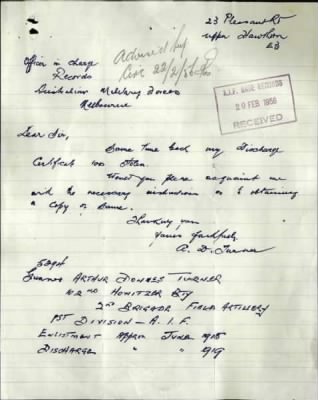 23 Pleasant Rd
Upper Hawthorn
E3
Officer in Charge
Records
Australian Military Forces
Melbourne
Advised by
Circ 22/2/56
A.I.F. BASE RECORDS
20 FEB 1956
RECEIVED
Dear Sir,
Some time back my Discharge
Certificate was stolen.
Would you please acquaint me
with the necessary instructions as to obtaining
a copy of same.
Thanking you
Yours faithfully
A. D. Turner
Gunner ARTHUR DOWNES TURNER
102ND HOWITZER BTY
2ND BRIGADE FIELD ARTILLERY
1ST DIVISION - A.I.F.
ENLISTMENT APPROX JUNE 1915
DISCHARGE " " 1919